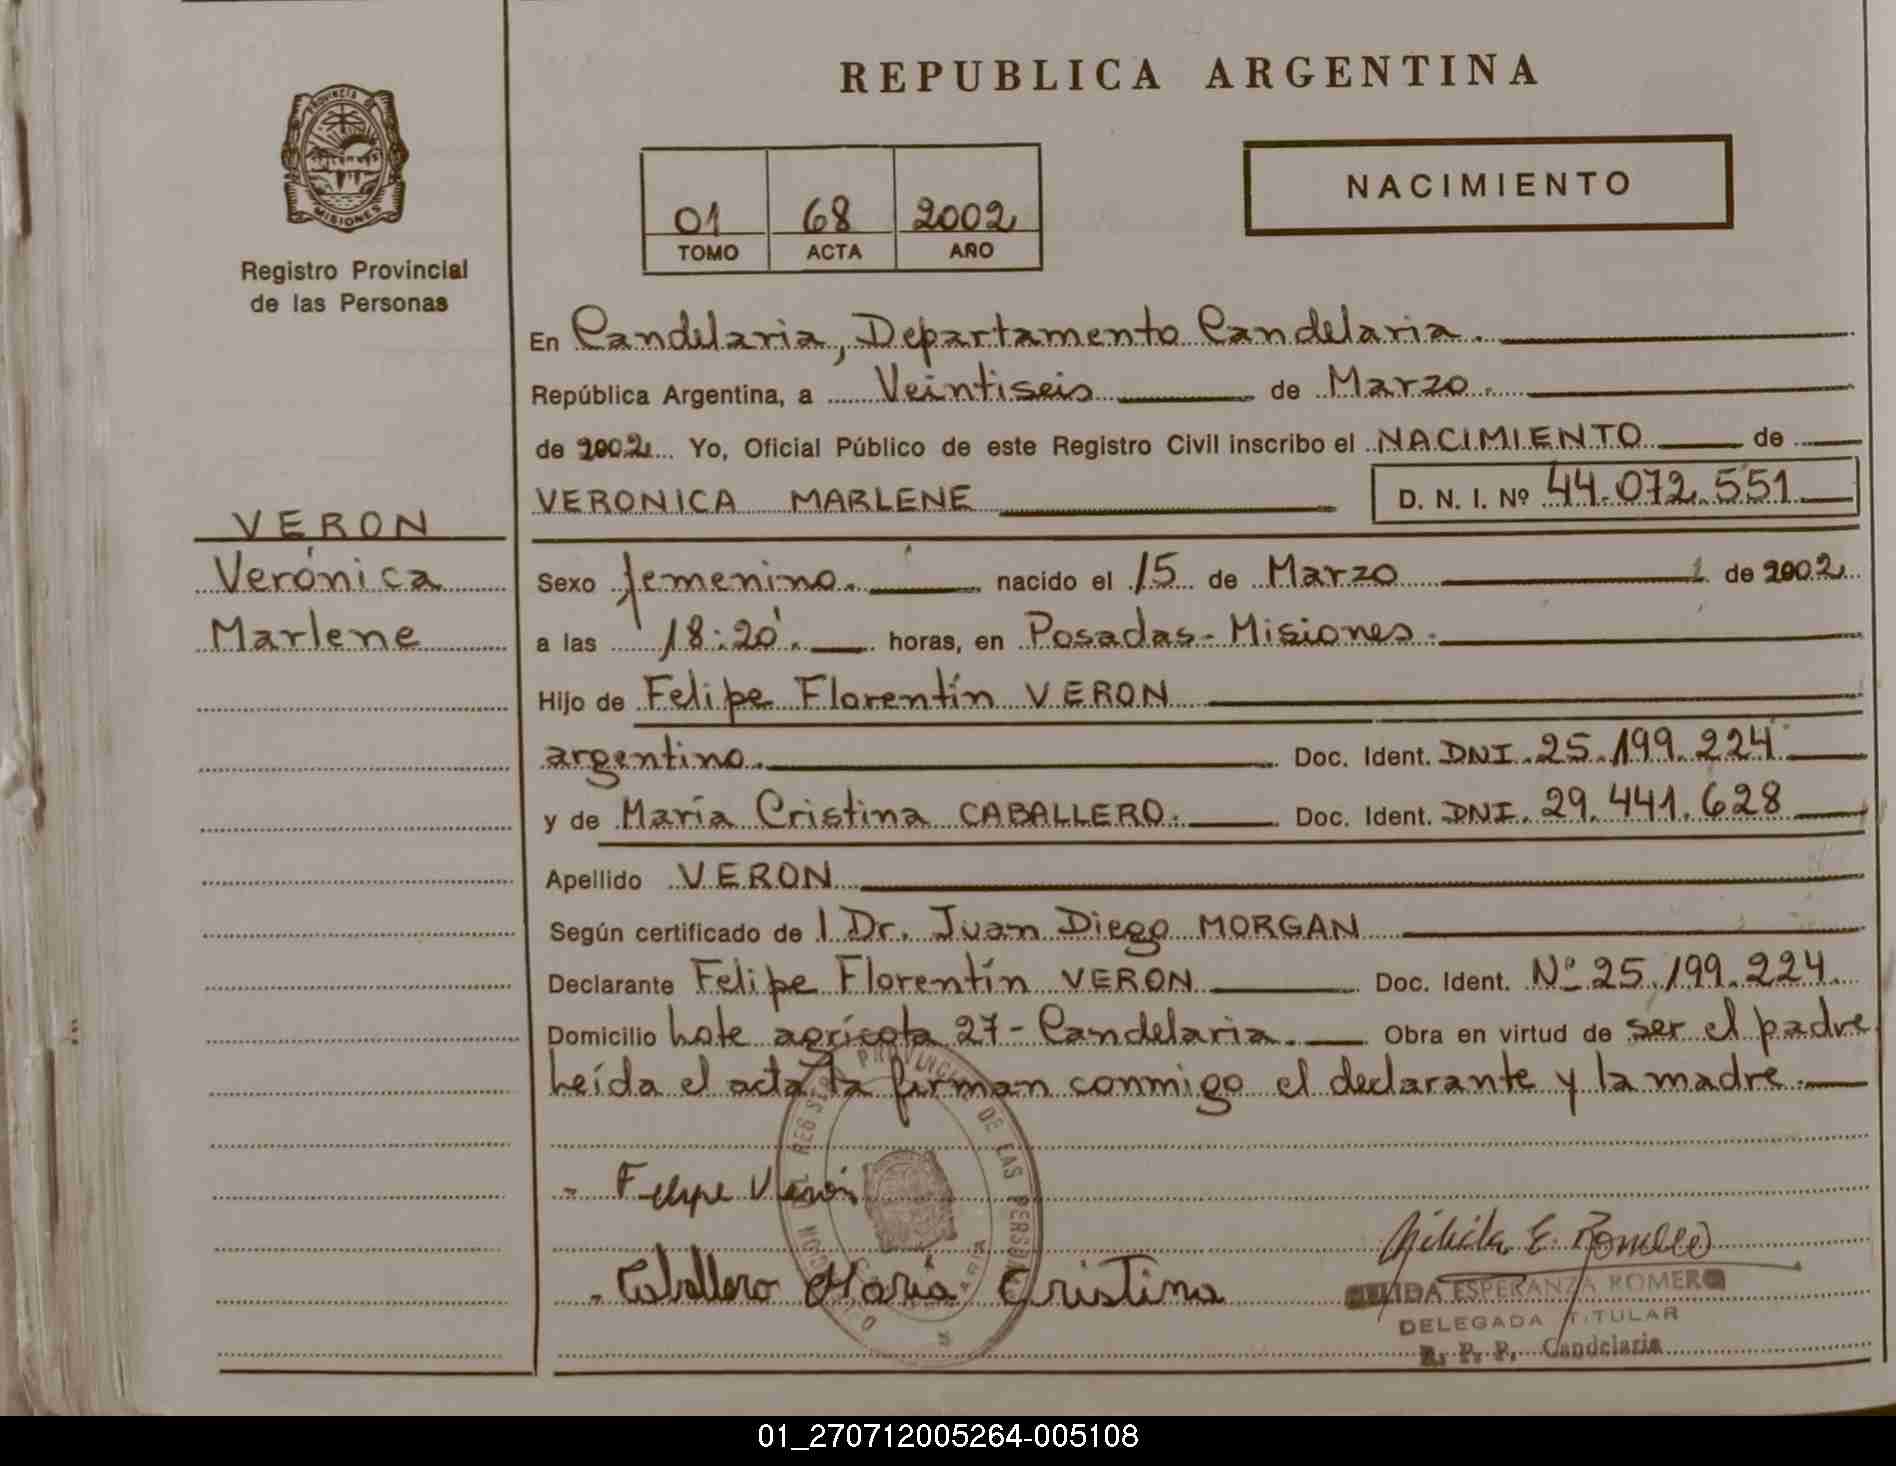 REPUBLICA ARGENTINA
PROVINCIA DE
MISIONES
Registro Provincial
de las Personas
01 68 2002
TOMO ACTA AÑO
NACIMIENTO
En Candelaria, Departamento Candelaria.
República Argentina, a Veintiseis de Marzo.
de 2002 Yo, Oficial Público de este Registro Civil inscribo el NACIMIENTO de
VERONICA MARLENE D. N. I. Nº 44.072.551
VERON
Verónica
Marlene
Sexo femenino. nacido el 15 de Marzo de 2002
a las 18:20'. horas, en Posadas - Misiones.
Hijo de Felipe Florentín VERON
argentino. Doc. Ident. DNI. 25.199.224
y de María Cristina CABALLERO. Doc. Ident. DNI. 29.441.628
Apellido VERON
Según certificado de l Dr. Juan Diego MORGAN
Declarante Felipe Florentín VERON Doc. Ident. Nº 25.199.224
Domicilio Lote agrícola 27 - Candelaria. Obra en virtud de ser el padre
Leída el acta la firman conmigo el declarante y la madre.
- Felipe Verón
- Caballero María Cristina
PROVINCIAL DE LAS PERSONAS
E. Romero
ESPERANZA ROMERO
DELEGADA TITULAR
R. P. P. Candelaria
01_270712005264-005108